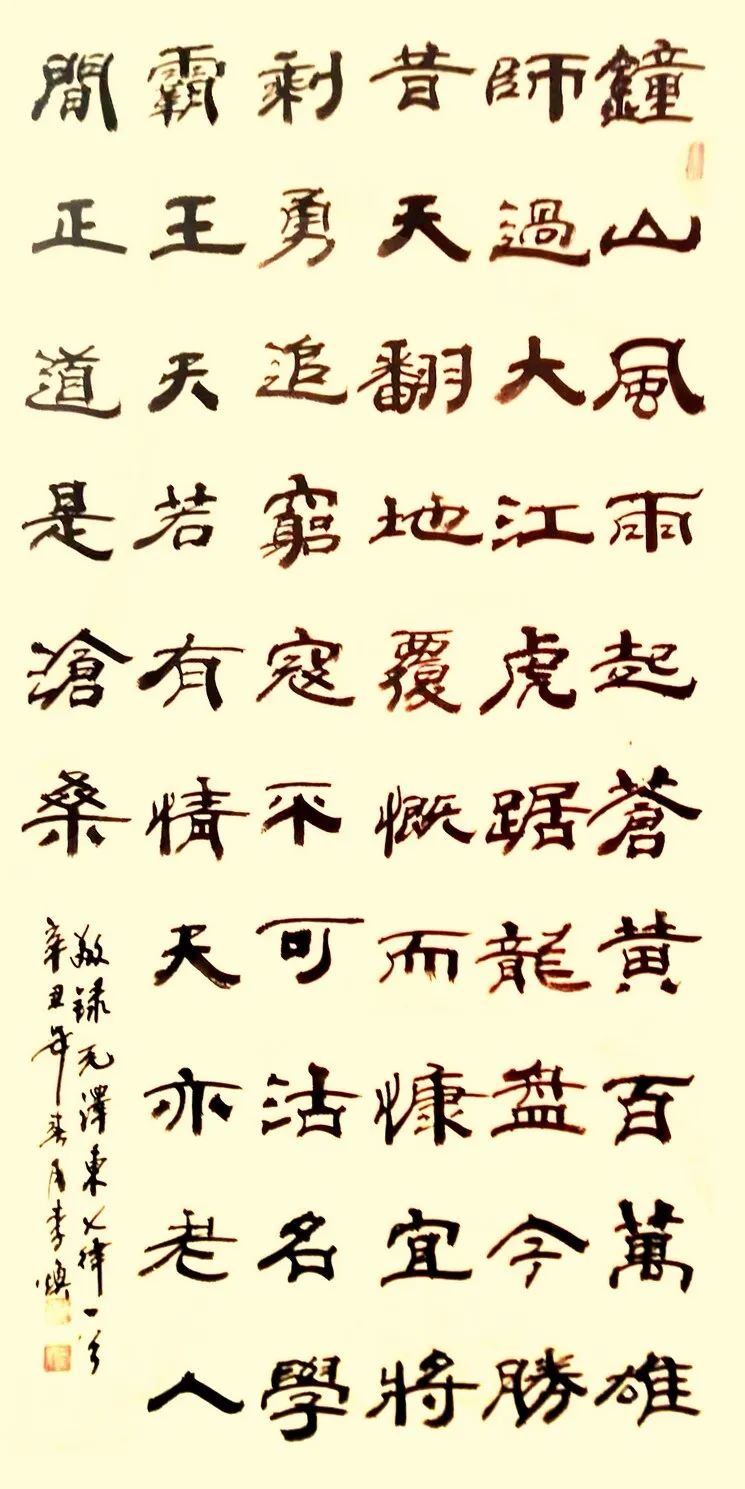 鐘山風雨起蒼黃百萬雄
師過大江虎踞龍盤今勝
昔天翻地覆慨而慷宜將
剩勇追窮寇不可沽名學
霸王天若有情天亦老人
間正道是滄桑
敬録毛澤東七律一首
辛丑年春月李煥